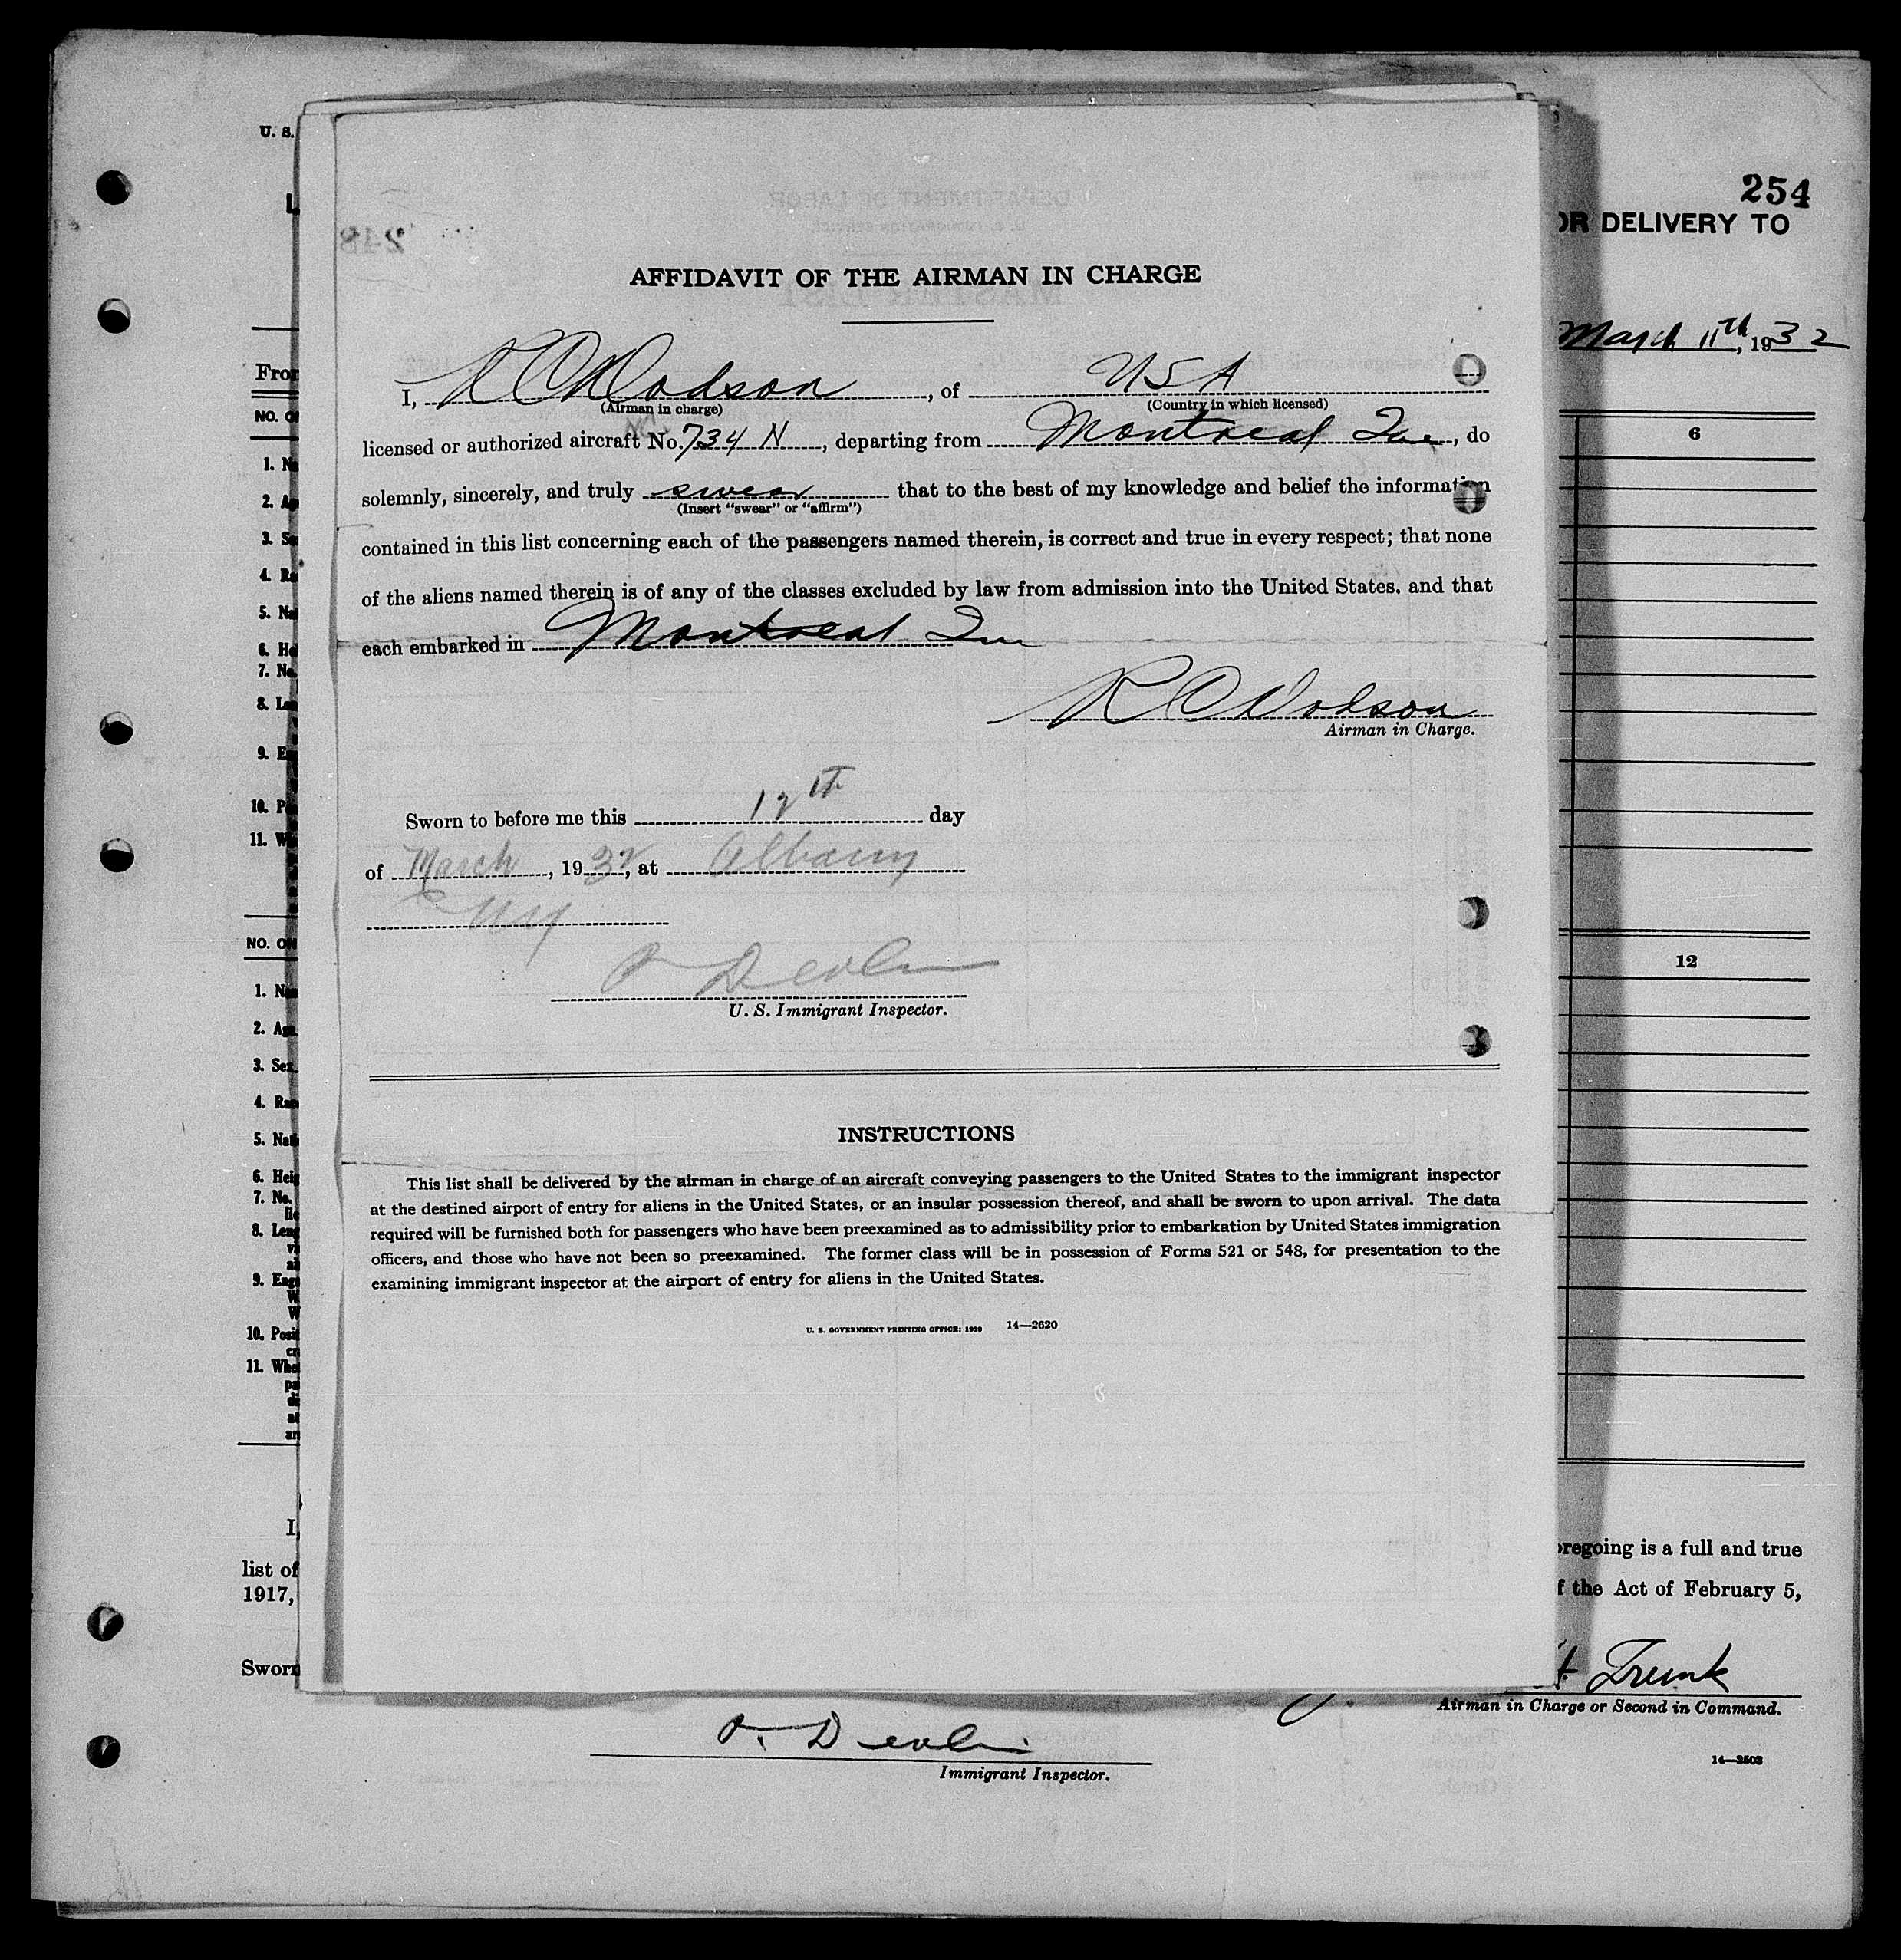 254
U. S.
L
OR DELIVERY TO
March 11th, 1932
From
NO. ON
6
1. Na
2. Ag
3. Se
4. Ra
5. Nat
6. Hei
7. No.
8. Len
9. En
10. Po
11. Wh
NO. ON
12
1. Nam
2. Age
3. Sex
4. Race
5. Nati
6. Heig
7. No.
8. Leng
9. Eng
10. Posi
11. Whe
I,
list of
1917,
Sworn
AFFIDAVIT OF THE AIRMAN IN CHARGE
I, R C Dodson, of USA
(Airman in charge) (Country in which licensed)
licensed or authorized aircraft No. 734 N, departing from Montreal Que, do
solemnly, sincerely, and truly swear that to the best of my knowledge and belief the information
(Insert "swear" or "affirm")
contained in this list concerning each of the passengers named therein, is correct and true in every respect; that none
of the aliens named therein is of any of the classes excluded by law from admission into the United States, and that
each embarked in Montreal Que
R C Dodson
Airman in Charge.
Sworn to before me this 12th day
of March, 1932, at Albany
NY
Devlin
U. S. Immigrant Inspector.
INSTRUCTIONS
This list shall be delivered by the airman in charge of an aircraft conveying passengers to the United States to the immigrant inspector
at the destined airport of entry for aliens in the United States, or an insular possession thereof, and shall be sworn to upon arrival. The data
required will be furnished both for passengers who have been preexamined as to admissibility prior to embarkation by United States immigration
officers, and those who have not been so preexamined. The former class will be in possession of Forms 521 or 548, for presentation to the
examining immigrant inspector at the airport of entry for aliens in the United States.
U. S. GOVERNMENT PRINTING OFFICE: 1929 14—2620
oregoing is a full and true
f the Act of February 5,
Trunk
Airman in Charge or Second in Command.
Devlin
Immigrant Inspector.
14—2503